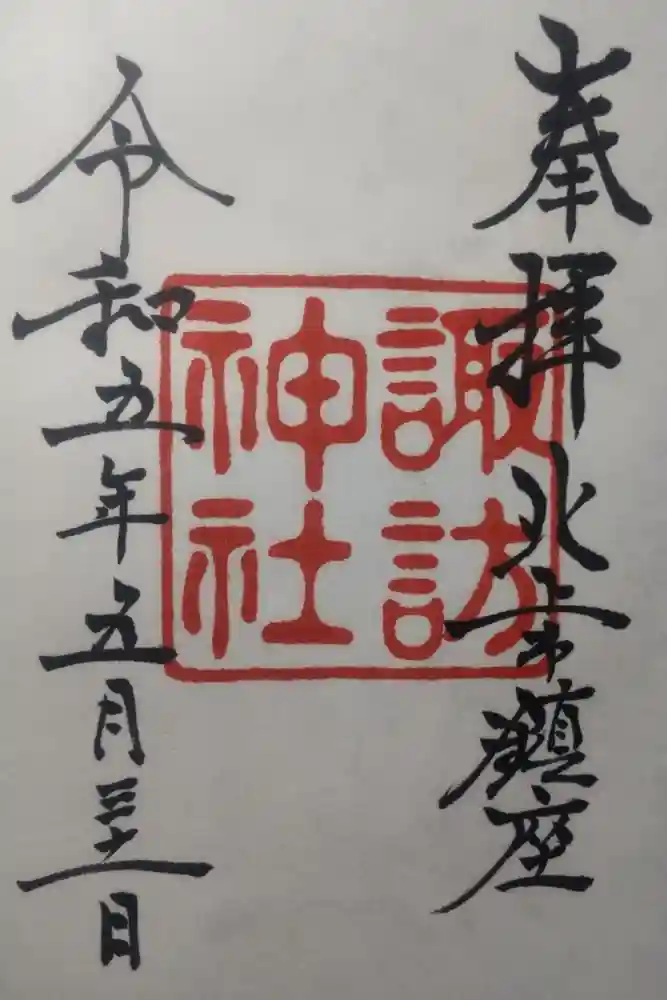 奉拝 北 鎮座
諏訪
神社
令和五年五月三十一日